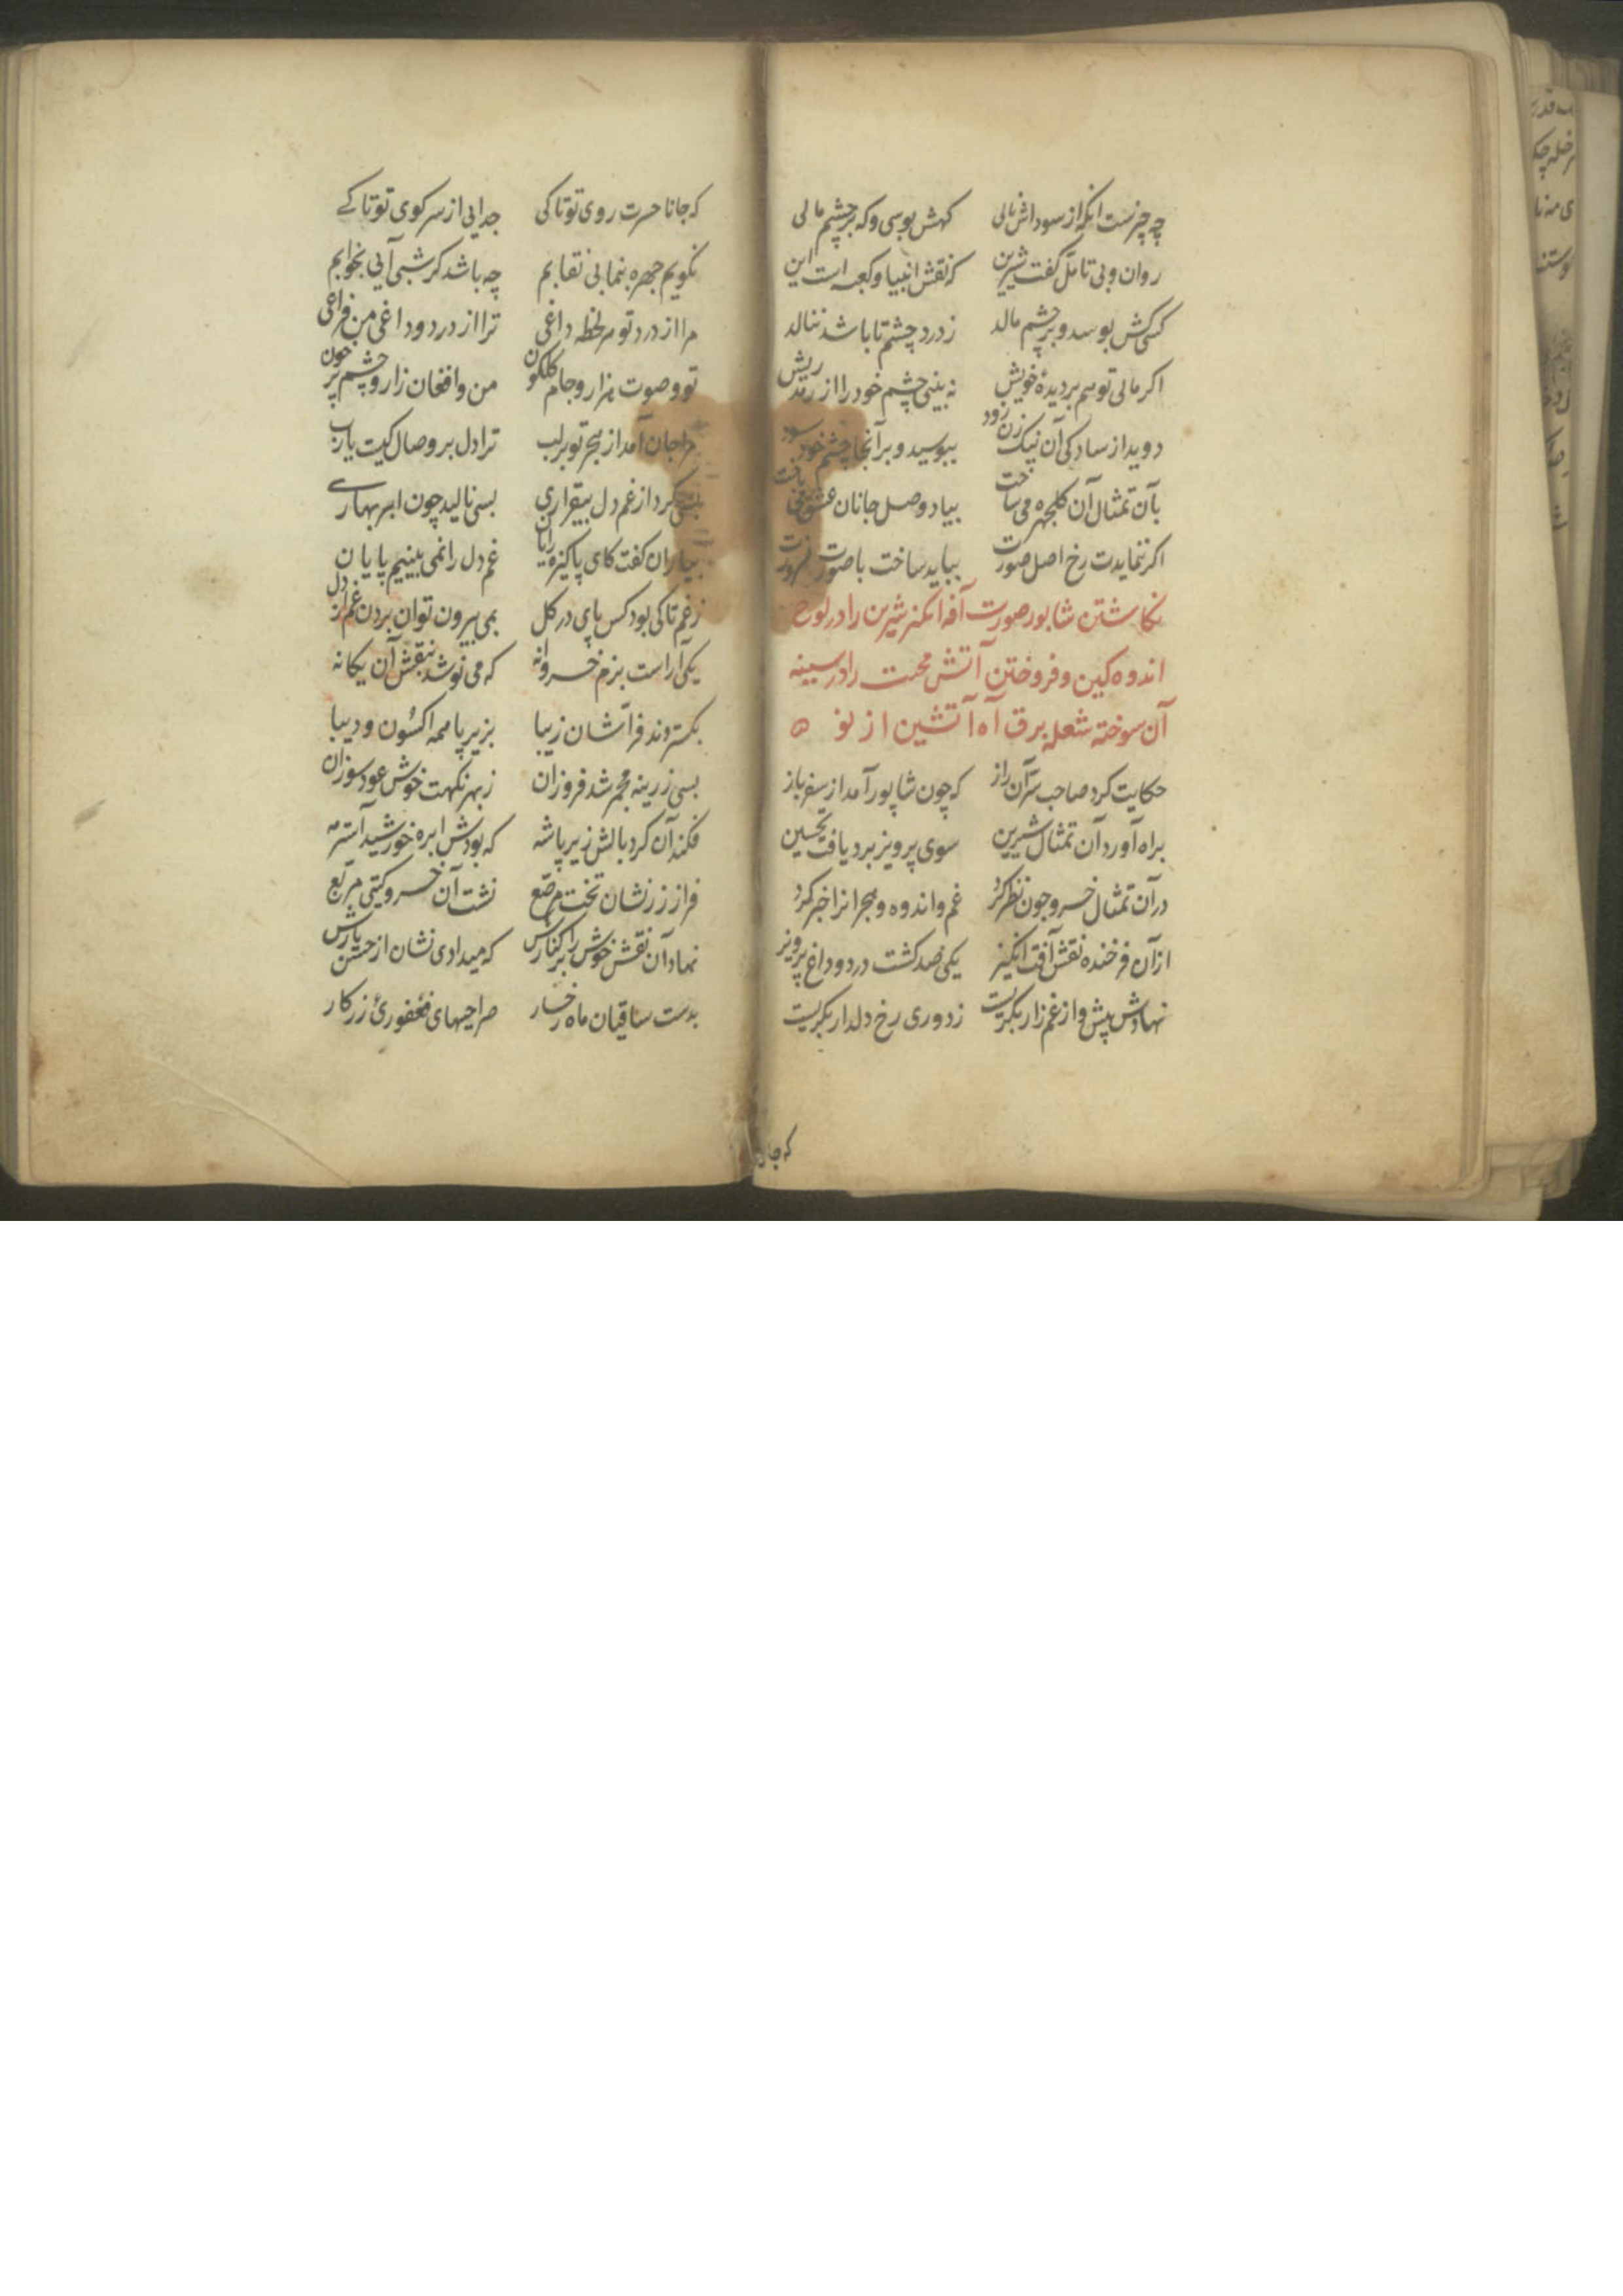 چه چیزست انکه از سوداش نالی کهش بوسی و که بر چشم مالی
روان و بی تامل کفت شیرین که نقش انبیا و کعبه است این
کسی کش بوسد و بر چشم مالد ز درد چشم تا باشد ننالد
اکر مالی تو هم بر دیدهٔ خویش نه بینی چشم خود را از رمد ریش
دوید از سادکی آن نیک زن زود ببوسید و بر آنجا چشم خود سود
بآن تمثال آن کلچهره می ساخت بیاد وصل جانان عشق می باخت
اکر ننمایدت رخ اصل صورت بباید ساخت با صورت ضرورت
نکاشتن شاپور صورت آفه انکیز شیرین را در لوح
اندوه کین و فروختن آتش محبت را در سینه
آن سوخته شعله برق آه آتشین از نو
حکایت کرد صاحب سر آن راز که چون شاپور آمد از سفر باز
براه آورد آن تمثال شیرین سوی پرویز برد یافت تحسین
در آن تمثال خسرو چون نظر کرد غم و اندوه و هجرانرا خبر کرد
از آن فرخنده نقش آفت انکیز یکی صد کشت درد و داغ پرویز
نهادش پیش و از غم زار بکریست ز دوری رخ دلدار بکریست
که جانا
که جانا حسرت روی تو تا کی جدایی از سر کوی تو تا کے
نکویم چهره بنما بی نقابم چه باشد کر شبی آیی بخوابم
مرا از درد تو هر لحظه داغی ترا از درد و داغ من فراغی
تو و صوت هزار و جام کلکون من و افغان زار و چشم پر خون
مرا جان آمد از هجر تو بر لب ترا دل بر وصال کیست یارب
بسی کرد از غم دل بیقراری بسی نالید چون ابر بهارے
بیاران کفت کای پاکیزه رایان غم دل را نمی بینیم پایان
ز غم تا کی بود کس پای در کل بمی بیرون توان بردن غم از دل
یکی آراست بزم خسروانه که می نوشد بنقش آن یکانه
بکستردند فراشان زیبا بزیر پا همه اکسون و دیبا
بسی زرینه مجمر شد فروزان ز بهر نکهت خوش عود سوزان
فکند آن کرد بالش زیر پا شه که بودش ابره خورشید آستر مه
فراز زر نشان تخت مرصع نشت آن خسرو کیتی مربع
نهاد آن نقش خوش را بر کنارش که میدادی نشان از حسن یارش
بدست ساقیان ماه رخسار صراحیهای فغفوری زر کار